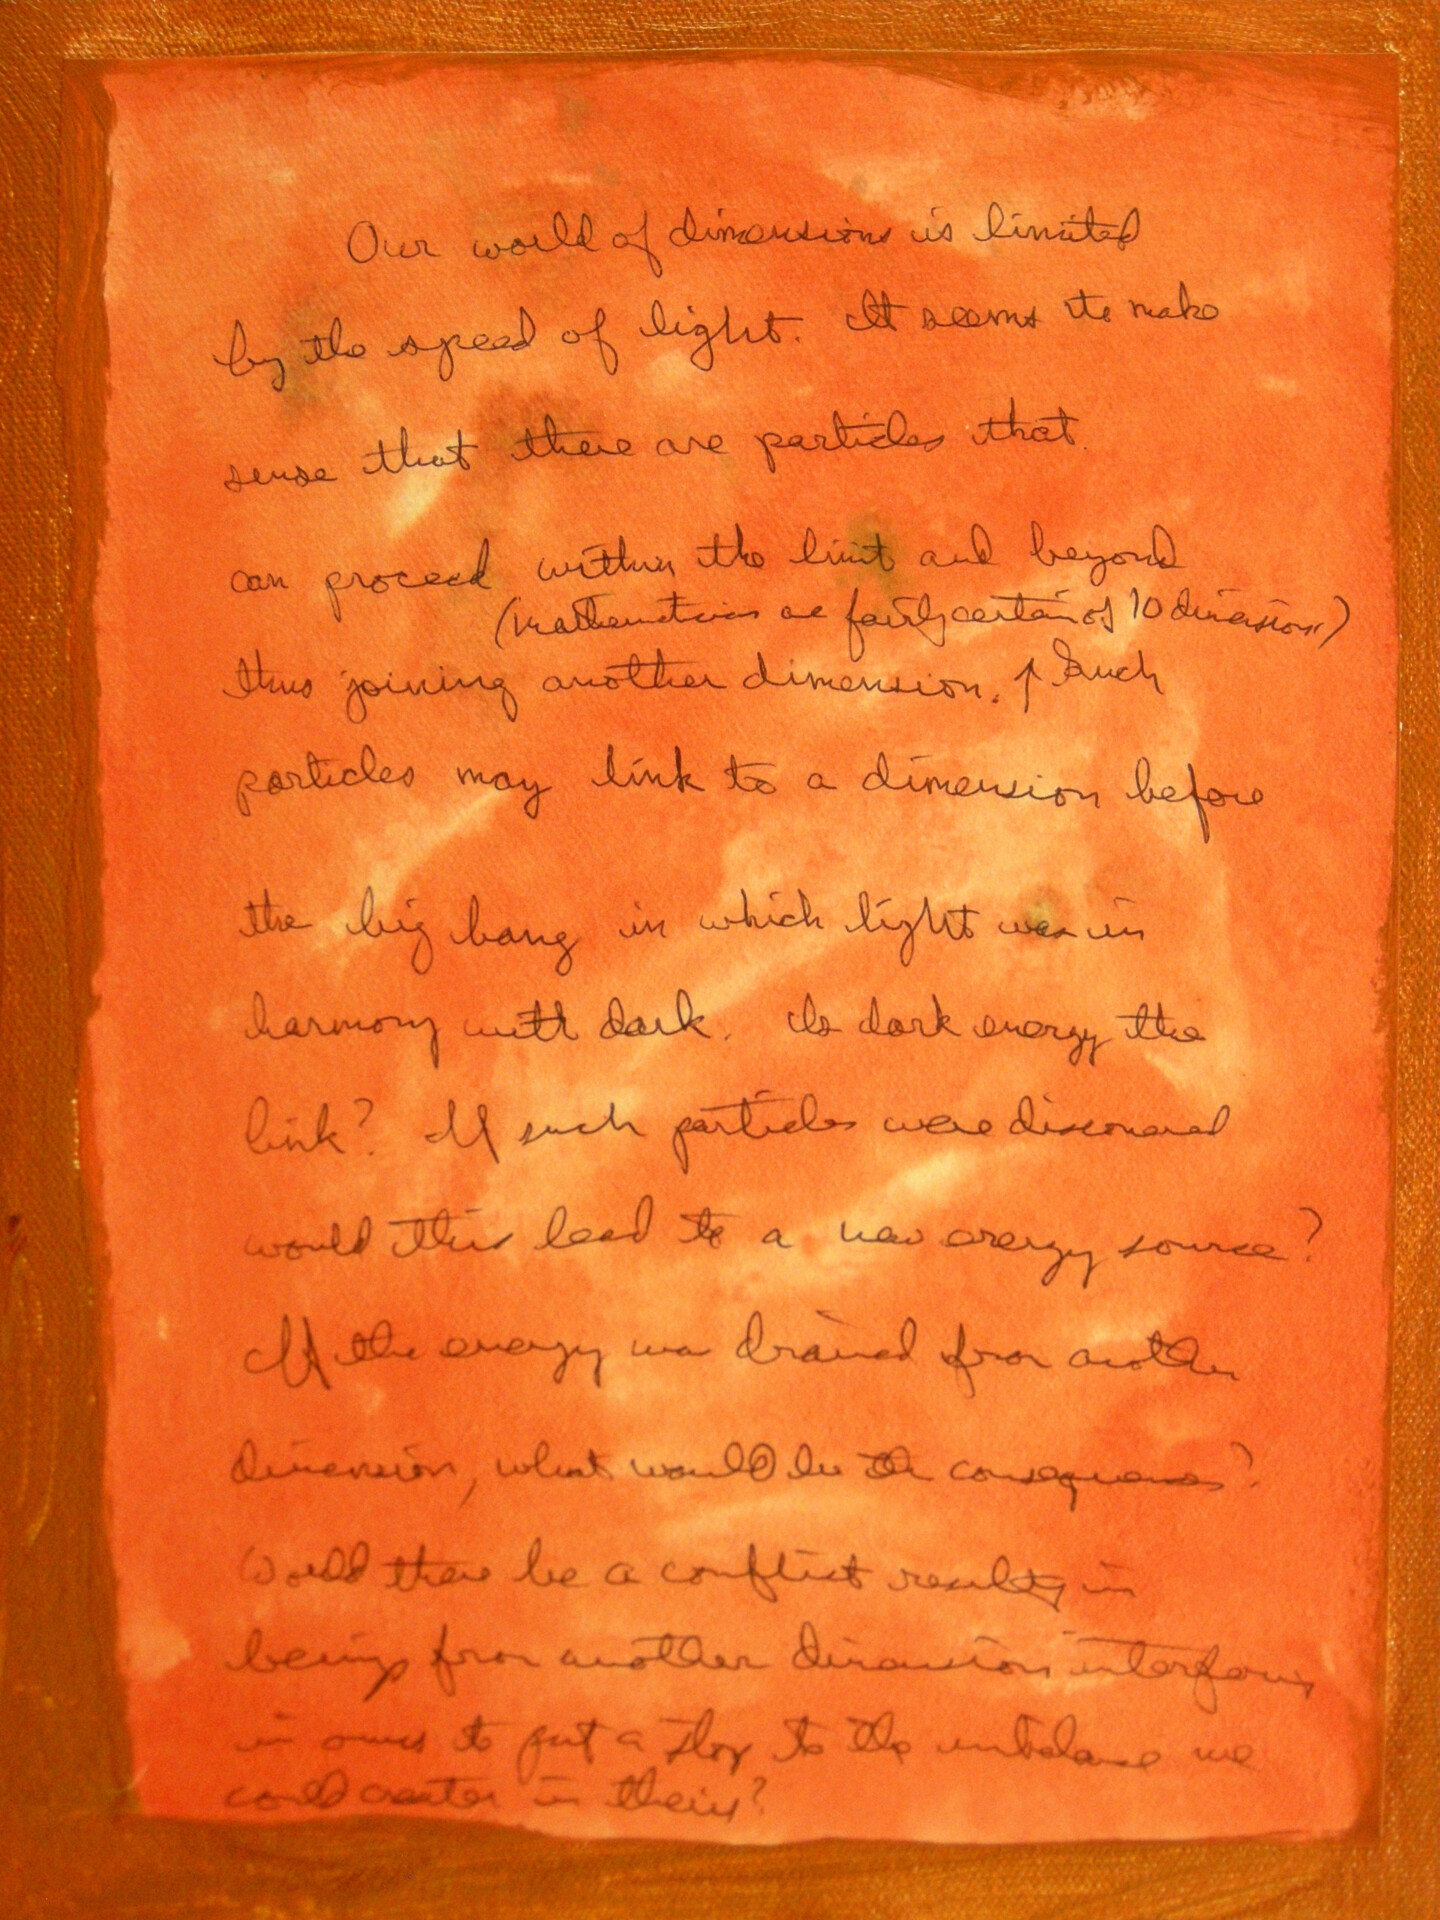 Our world of dimensions is limited
by the speed of light. It seems to make
sense that there are particles that
can proceed within the limit and beyond
(Mathematicians are fairly certain of 10 dimensions)
thus joining another dimension. ↑ Such
particles may link to a dimension before
the big bang in which light was in
harmony with dark. Is dark energy the
link? If such particles were discovered
would this lead to a new energy source?
If the energy was drained from another
dimension, what would be the consequences?
Would there be a conflict resulting in
beings from another dimension interfering
in ours to put a stop to the imbalance we
could create in theirs?